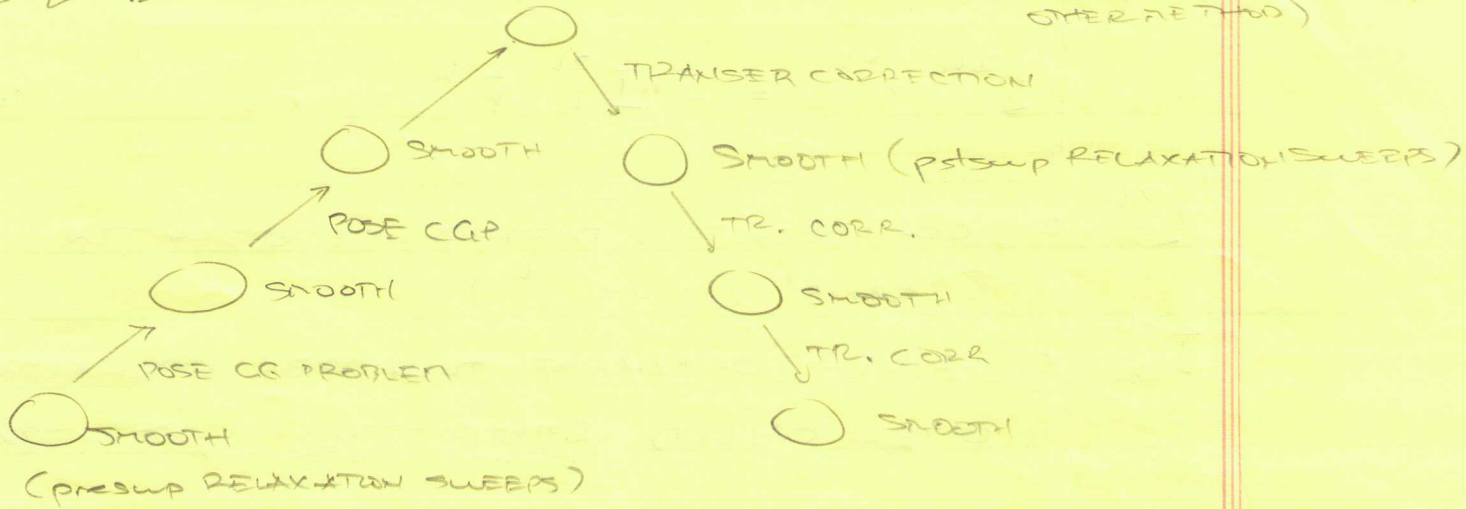 OTHER METHOD)
TRANSER CORRECTION
SMOOTH
SMOOTH (pstswp RELAXATION SWEEPS)
POSE CGP
TR. CORR.
SMOOTH
SMOOTH
TR. CORR
POSE CG PROBLEM
SMOOTH
SMOOTH
(preswp RELAXATION SWEEPS)